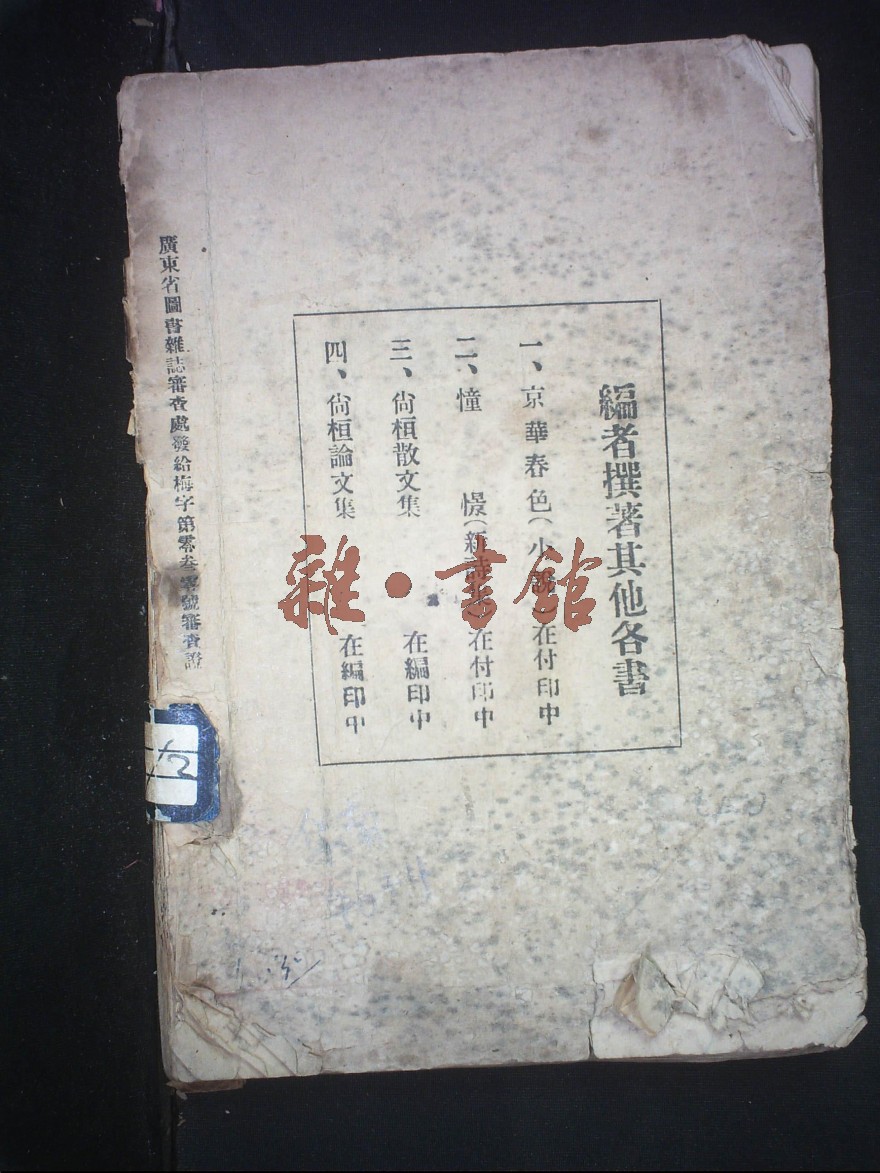 編者撰著其他各書
一、京華春色(小說)在付印中
二、憧憬(新詩集)在付印中
三、尙桓散文集 在編印中
四、尙桓論文集 在編印中
廣東省圖書雜誌審查處發給梅字第零叁零號審查證
雜·書館